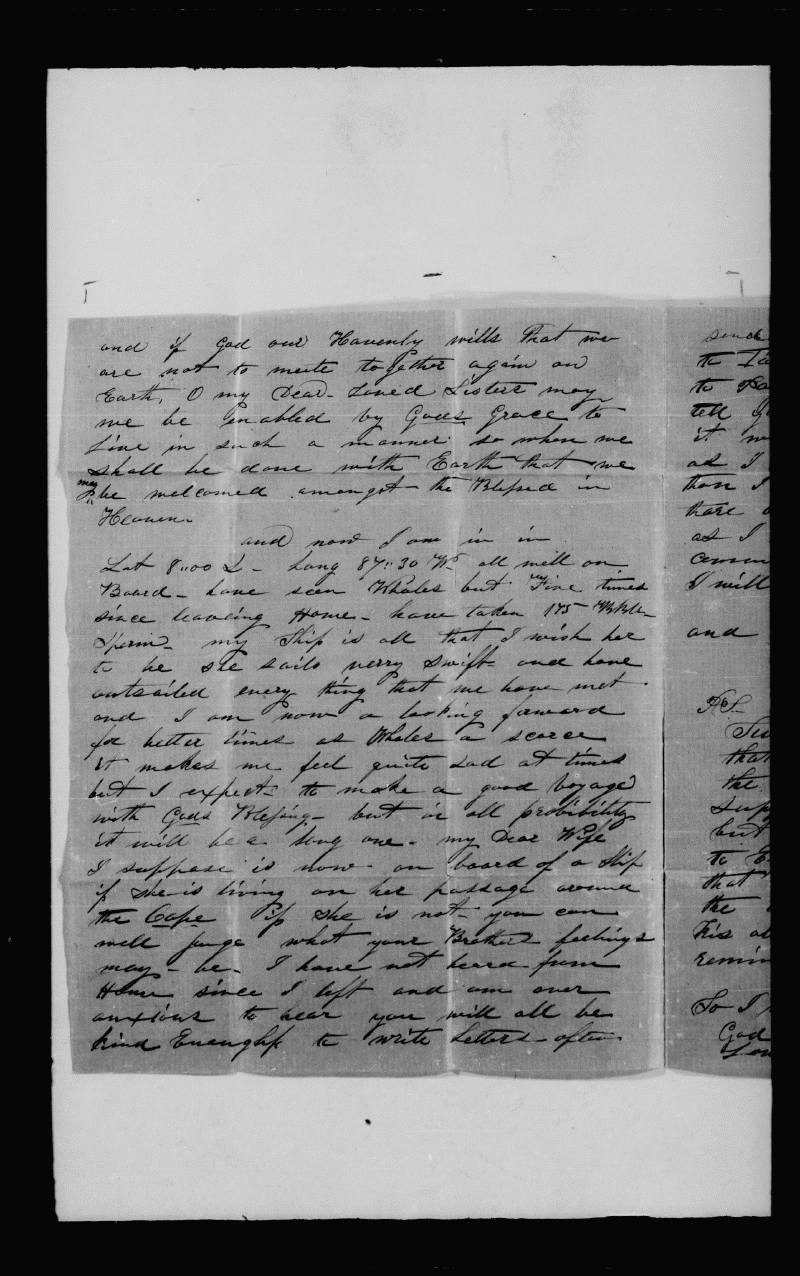 and if God our Havenly wills that we
are not to meete together again on
Earth, O my Dear Loved Sisters may
we be enabled by Gods Grace to
Live in such a manner so when we
shall be done with Earth that we
may
be welcomed amongst the Blessed in
Heaven.
and now I am in in
Lat 8"00 Long 87"30 W all well on
Board - have seen Whales but Five times
since leaveing Home - have taken 175 Bbls
Sperm - my Ship is all that I wish her
to be she sails verry swift and have
outsailed every thing that we have met
and I am now a looking forward
for better times as Whales a scarce
it makes me feel quite sad at times
but I expect to make a good voyage
with Gods Blessing - but in all probibility
it will be a long one - my Dear Wife
I suppose is now on board of a Ship
if she is living on her passage around
the Cape if she is not - you can
well juge what your Brothers feelings
may - be - I have not heard from
Home since I left and am over
anxious to hear you will all be
kind Enough to write Letters often
send
to
to
tell
it
as I
than I
thare
as I
I will
and
P.S.
that
the
but
to
that
the
his
remin
So I
God